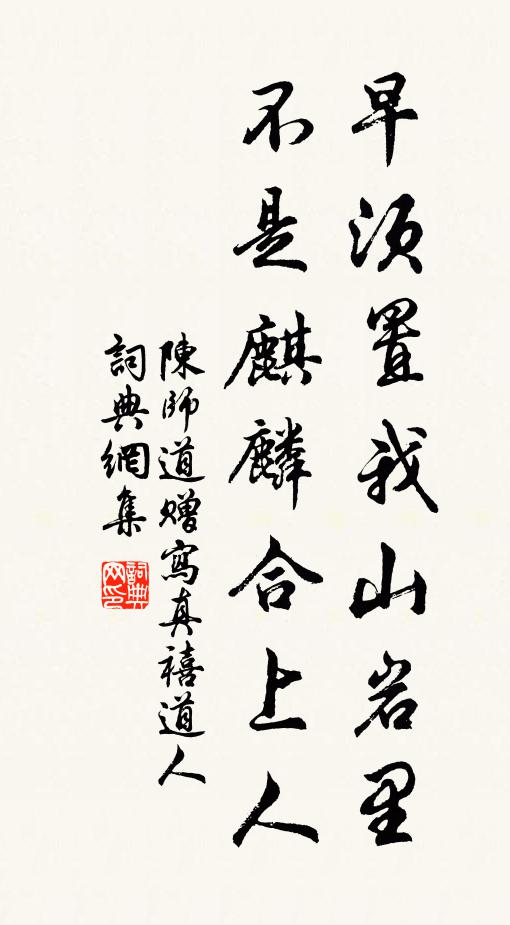 早須置我山岩里
不是麒麟合上人
陳師道贈寫真禧道人
詞典網集
詞典网印